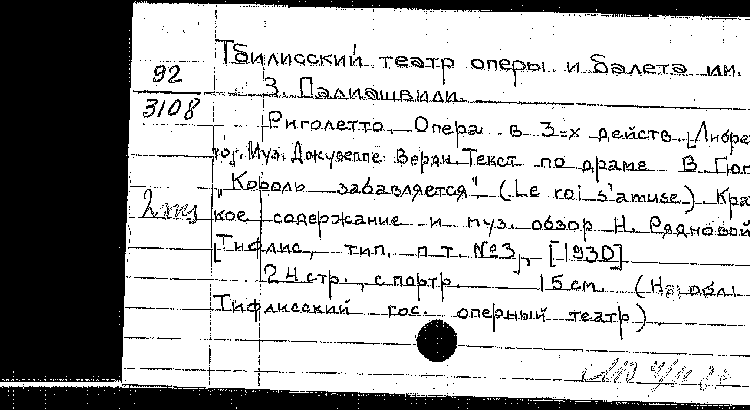 Тбилисский театр оперы и балета им.
92
З. Палиашвили.
3108
Риголетто. Опера в 3-х действ. [Либрет-
то]. Муз. Джузеппе Верди. Текст по драме В. Гюг
„Король забавляется" (Le roi s'amuse). Крат
2 экз
кое содержание и муз. обзор Н. Рядновой
[Тифлис, тип. п.т. №3], [1930]
24 стр., с портр. 15 см. (На обл:
Тифлисский гос. оперный театр).